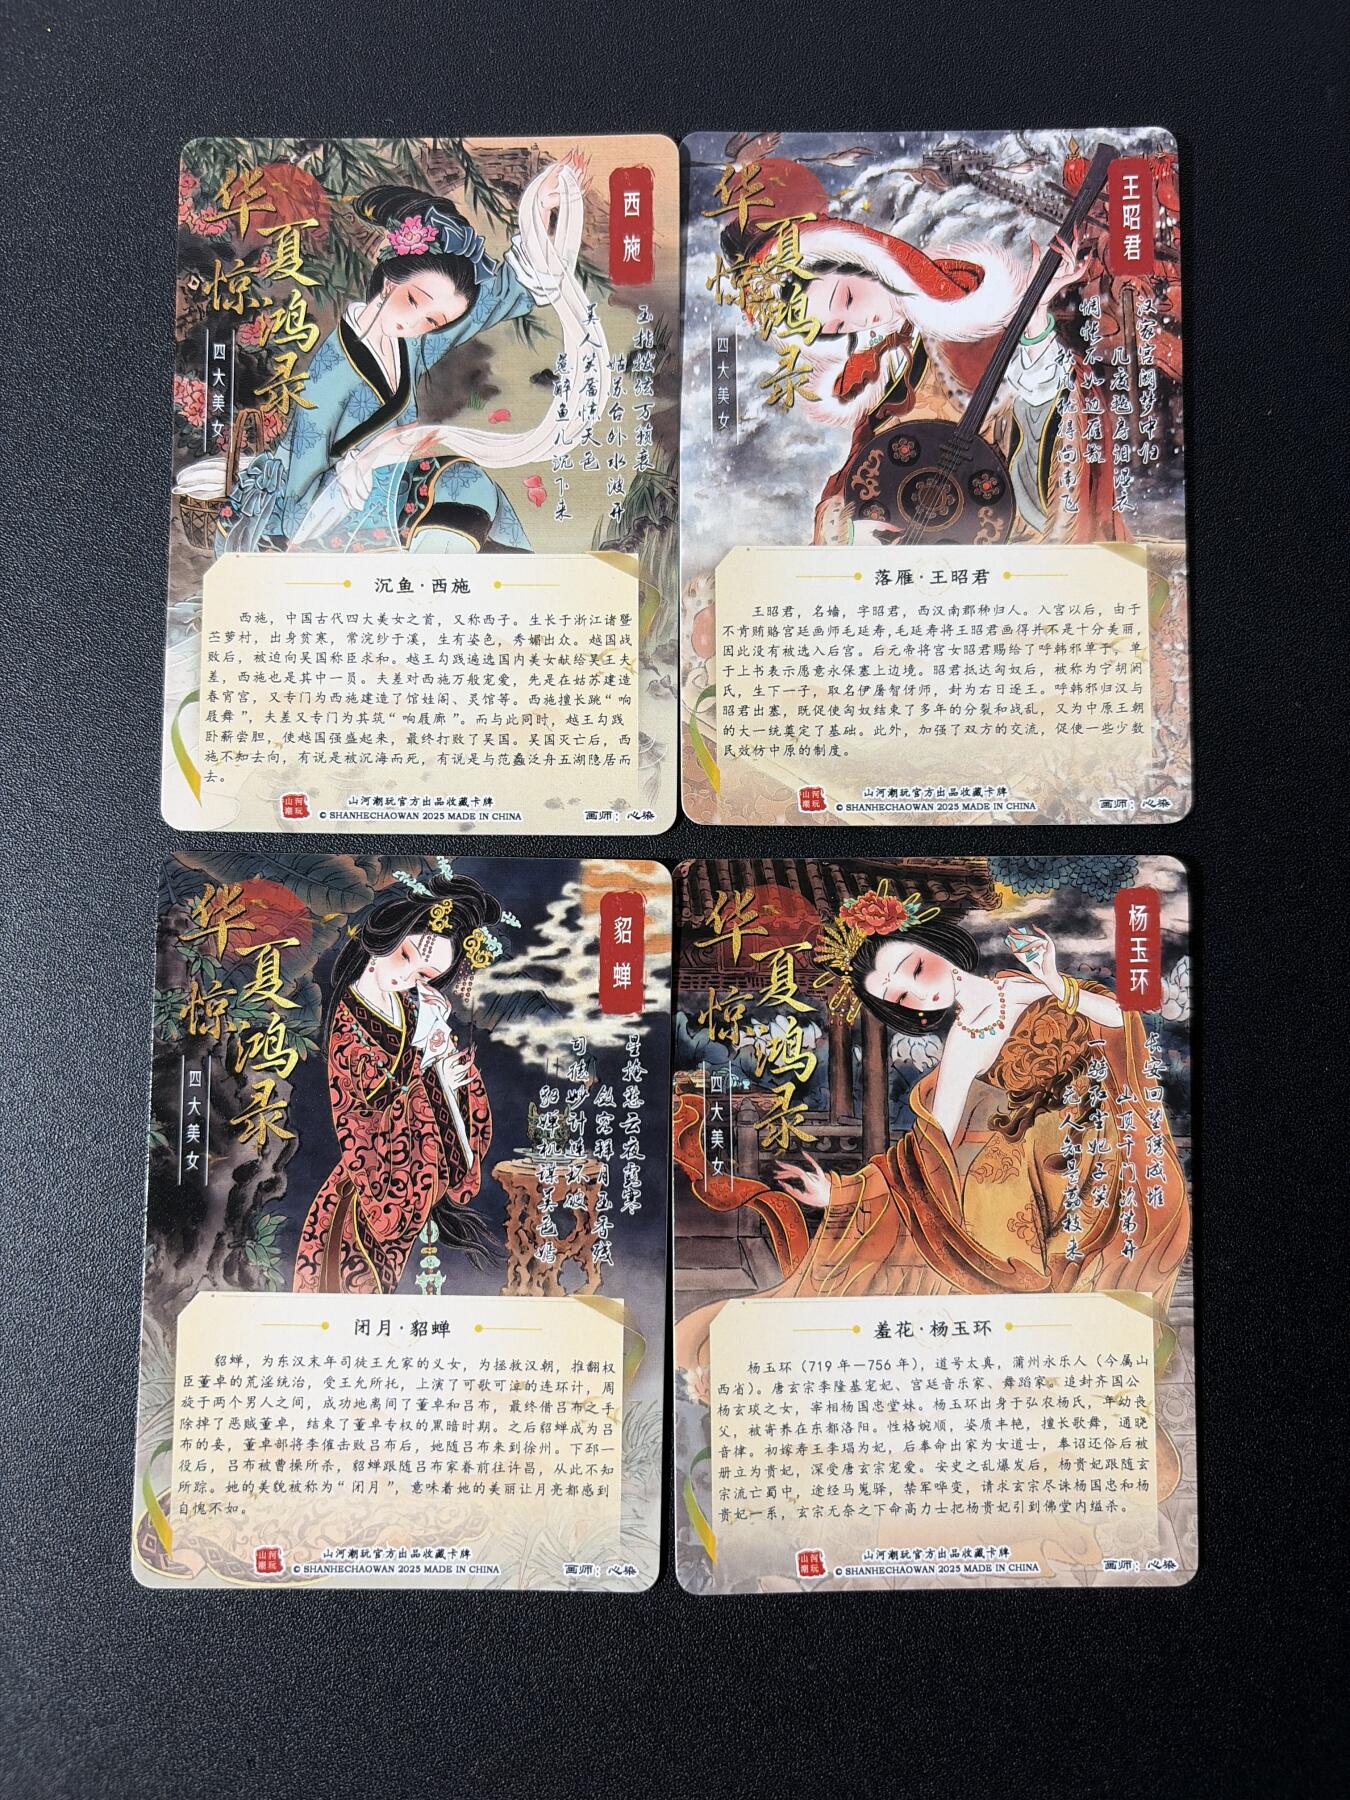 华夏惊鸿录
四大美女
西施
玉指拨弦万籁哀
姑苏台外水波开
美人笑靥惊天色
惹醉鱼儿沉下来
沉鱼·西施
西施，中国古代四大美女之首，又称西子。生长于浙江诸暨
苎萝村，出身贫寒，常浣纱于溪，生有姿色，秀媚出众。越国战
败后，被迫向吴国称臣求和。越王勾践遍选国内美女献给吴王夫
差，西施也是其中一员。夫差对西施万般宠爱，先是在姑苏建造
春宵宫，又专门为西施建造了馆娃阁、灵馆等。西施擅长跳“响
屐舞”，夫差又专门为其筑“响屐廊”。而与此同时，越王勾践
卧薪尝胆，使越国强盛起来，最终打败了吴国。吴国灭亡后，西
施不知去向，有说是被沉海而死，有说是与范蠡泛舟五湖隐居而
去。
山河潮玩
山河潮玩官方出品收藏卡牌
© SHANHECHAOWAN 2025 MADE IN CHINA
画师：心染
华夏惊鸿录
四大美女
王昭君
汉家宫阙梦中归
几度毡房泪湿衣
惆怅不如边雁影
秋风犹得向南飞
落雁·王昭君
王昭君，名嫱，字昭君，西汉南郡秭归人。入宫以后，由于
不肯贿赂宫廷画师毛延寿，毛延寿将王昭君画得并不是十分美丽，
因此没有被选入后宫。后元帝将宫女昭君赐给了呼韩邪单于，单
于上书表示愿意永保塞上边境。昭君抵达匈奴后，被称为宁胡阏
氏，生下一子，取名伊屠智伢师，封为右日逐王。呼韩邪归汉与
昭君出塞，既促使匈奴结束了多年的分裂和战乱，又为中原王朝
的大一统奠定了基础。此外，加强了双方的交流，促使一些少数
民效仿中原的制度。
山河潮玩
山河潮玩官方出品收藏卡牌
© SHANHECHAOWAN 2025 MADE IN CHINA
画师：心染
华夏惊鸿录
四大美女
貂蝉
星掩愁云夜露寒
敛容拜月玉香残
司徒妙计连环破
貂蝉机谋美色
闭月·貂蝉
貂蝉，为东汉末年司徒王允家的义女，为拯救汉朝，推翻权
臣董卓的荒淫统治，受王允所托，上演了可歌可泣的连环计，周
旋于两个男人之间，成功地离间了董卓和吕布，最终借吕布之手
除掉了恶贼董卓，结束了董卓专权的黑暗时期。之后貂蝉成为吕
布的妾，董卓部将李傕击败吕布后，她随吕布来到徐州。下邳一
役后，吕布被曹操所杀，貂蝉跟随吕布家眷前往许昌，从此不知
所踪。她的美貌被称为“闭月”，意味着她的美丽让月亮都感到
自愧不如。
山河潮玩
山河潮玩官方出品收藏卡牌
© SHANHECHAOWAN 2025 MADE IN CHINA
画师：心染
华夏惊鸿录
四大美女
杨玉环
长安回望绣成堆
山顶千门次第开
一骑红尘妃子笑
无人知是荔枝来
羞花·杨玉环
杨玉环（719 年—756 年），道号太真，蒲州永乐人（今属山
西省）。唐玄宗李隆基宠妃、宫廷音乐家、舞蹈家。追封齐国公
杨玄琰之女，宰相杨国忠堂妹。杨玉环出身于弘农杨氏，年幼丧
父，被寄养在东都洛阳。性格婉顺，姿质丰艳，擅长歌舞，通晓
音律。初嫁寿王李瑁为妃，后奉命出家为女道士，奉诏还俗后被
册立为贵妃，深受唐玄宗宠爱。安史之乱爆发后，杨贵妃跟随玄
宗流亡蜀中，途经马嵬驿，禁军哗变，请求玄宗尽诛杨国忠和杨
贵妃一系，玄宗无奈之下命高力士把杨贵妃引到佛堂内缢杀。
山河潮玩
山河潮玩官方出品收藏卡牌
© SHANHECHAOWAN 2025 MADE IN CHINA
画师：心染